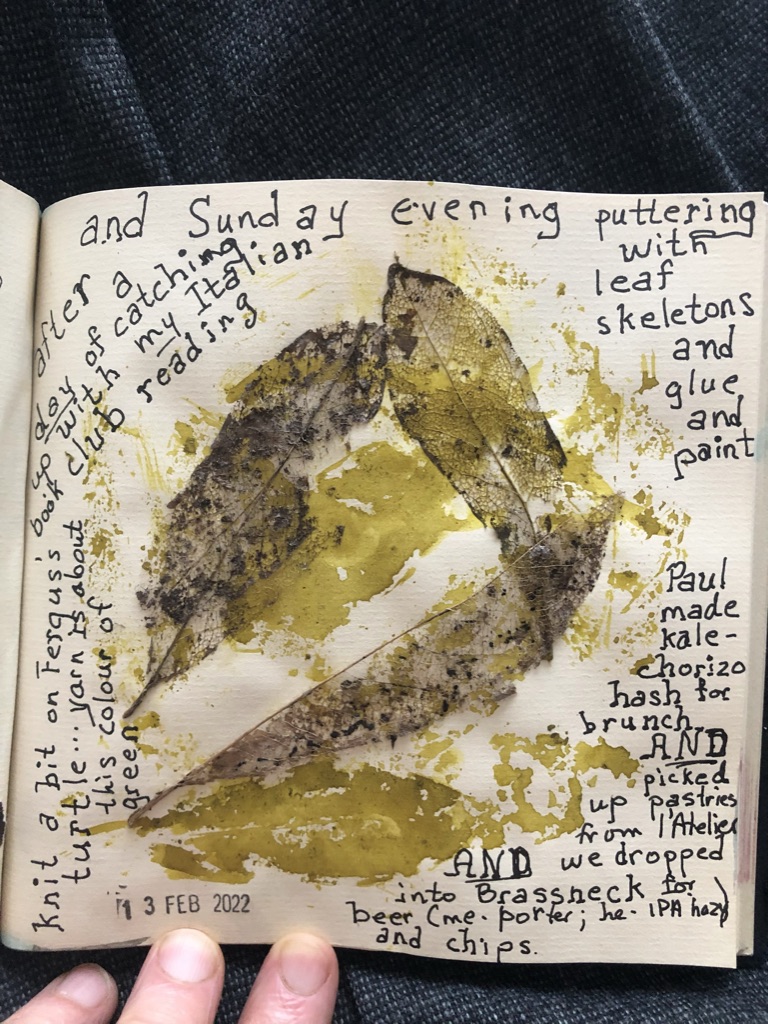 and Sunday evening puttering
with
leaf
skeletons
and
glue
and
paint
after a
day of catching
up with my Italian
book club reading
knit a bit on Fergus's
turtle... yarn is about
this colour of
green
Paul
made
kale-
chorizo
hash for
brunch
AND
picked
up pastries
from l'Atelier
AND we dropped
into Brassneck for
beer (me. porter; he. IPA hazy)
and chips.
13 FEB 2022